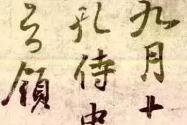 九月十
孔侍中
知領